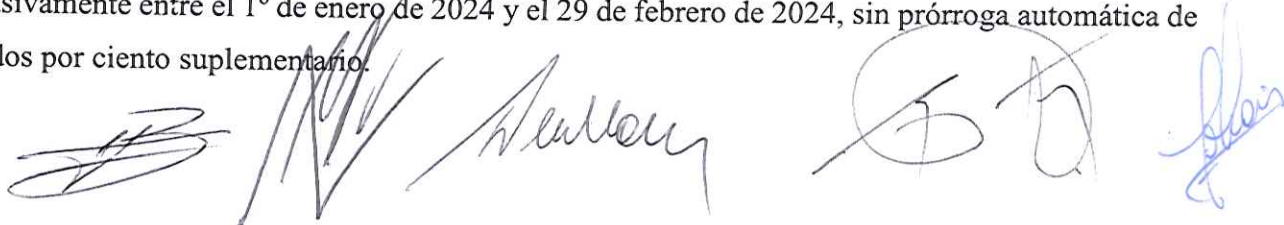 sivamente entre el 1° de enero de 2024 y el 29 de febrero de 2024, sin prórroga automática de
los por ciento suplementario.